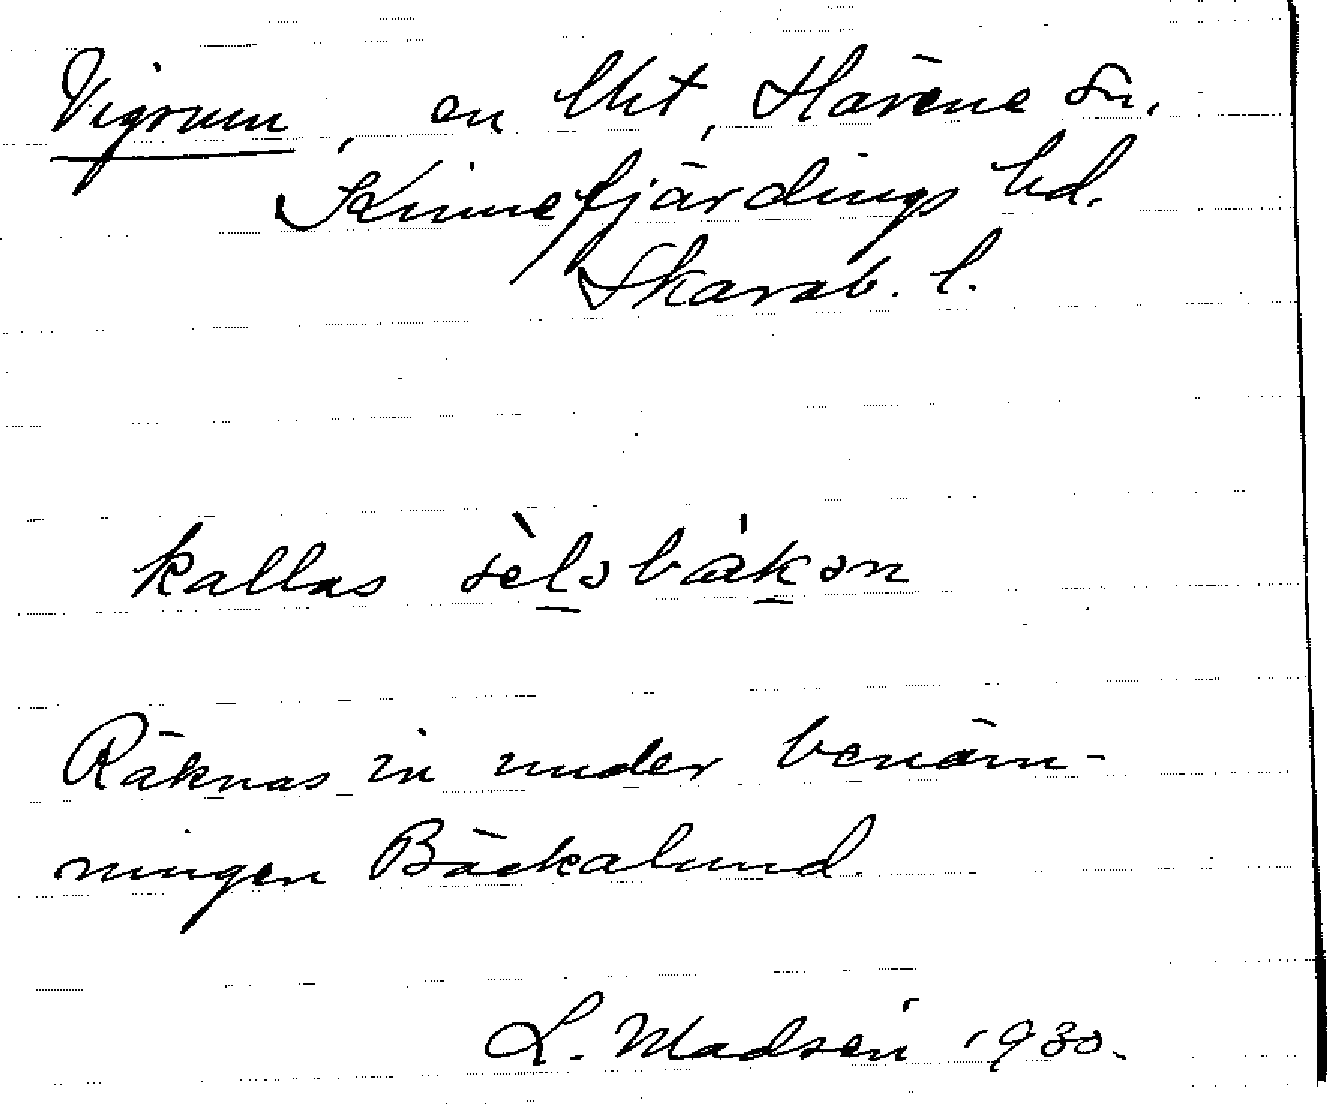 Vigrum, en lht, Härene sn,
Kinnefjärdings hd.
Skarab. l.
kallas sèlsbäkən
Räknas in under benäm-
ningen Bäckalund.
L. Madsén 1930.